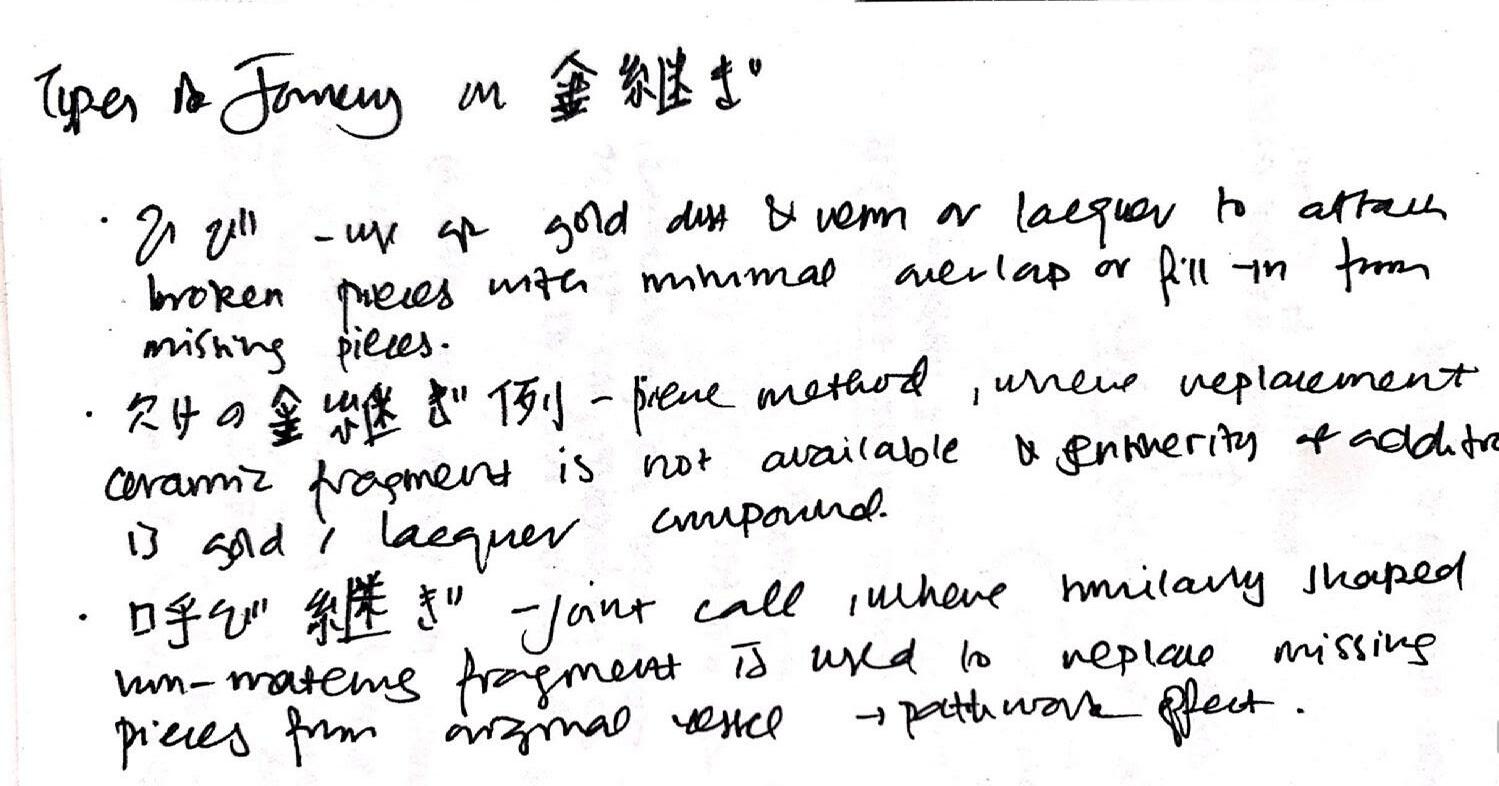 Types of Joinery in 金継ぎ
· ひび - use of gold dust & resin or lacquer to attach
broken pieces with minimal overlap or fill-in from
missing pieces.
· 欠けの金継ぎ例 - piece method, where replacement
ceramic fragment is not available & entirety of additio
is gold / lacquer compound.
· 呼び継ぎ - joint call, where similarly shaped
non-matching fragment is used to replace missing
pieces from original vessel → patchwork effect.